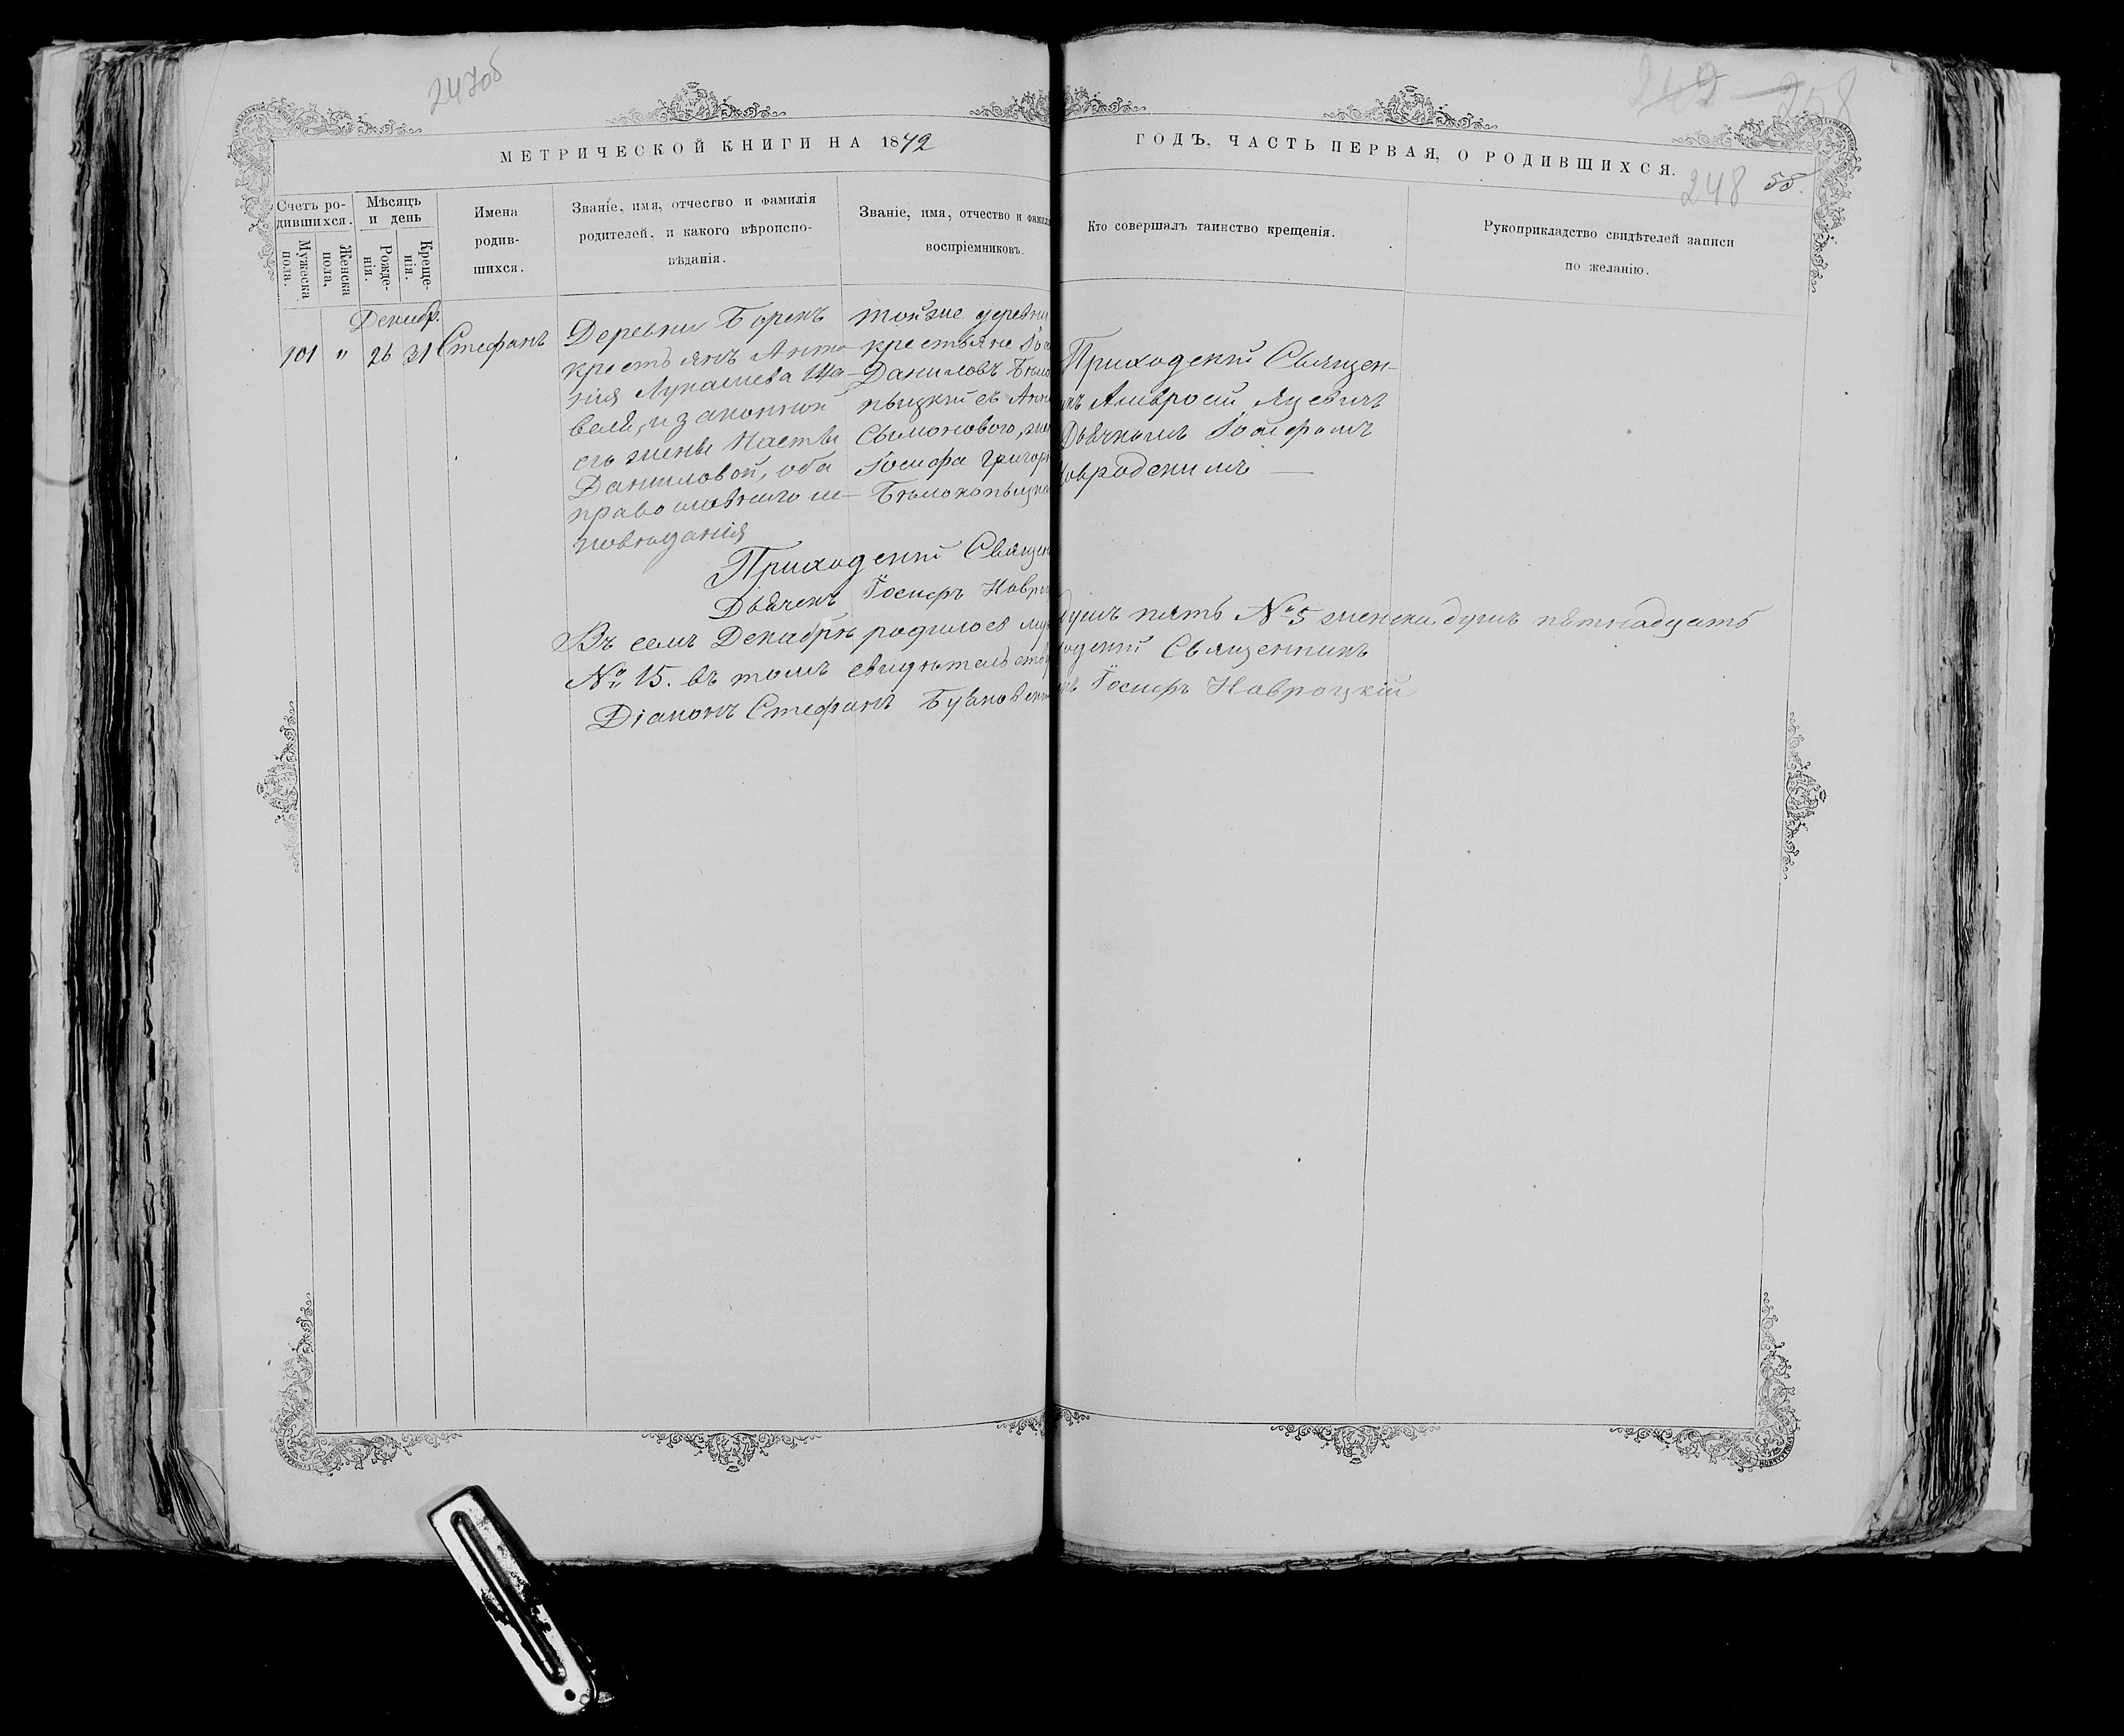 247об
МЕТРИЧЕСКОЙ КНИГИ НА 1872
ГОДЪ, ЧАСТЬ ПЕРВАЯ, О РОДИВШИХСЯ.
248 55.
Счетъ ро-
дившихся.
Мужеска
пола.
Женска
пола.
Мѣсяцъ
и день
Рожде-
нія.
Креще-
нія.
Имена
родив-
шихся.
Званіе, имя, отчество и фамилія
родителей, и какого вѣроиспо-
вѣданія.
Званіе, имя, отчество и фамил
воспріемниковъ.
Кто совершалъ таинство крещенія.
Рукоприкладство свидѣтелей записи
по желанію.
Декабр.
101 " 26 31 Стефанъ
Деревни Борекъ
крестьянъ Анто-
нія Лукашева Ша-
валя, и законной
его жены Настьи
Даниловой, оба
православнаго ис-
повѣданія
тойже деревни
крестьяне
Даниловъ Бѣло
пыцкій съ Анн
Сымонового, жен
Іосифа Григорь
Бѣлокопыцка
Приходскій Священ-
икъ Амвросій Яцевичъ
Дьячкомъ Іосифомъ
Навродскимъ —
Приходскій Священ
Дьячекъ Іосифъ Навро
Въ семъ Декабрѣ родилось муж
душъ пять № 5 женска душъ пѣтнадцать
№ 15. въ томъ свидѣтельств
одскій Священникъ
Діаконъ Стефанъ
Іосифъ Навроцкій